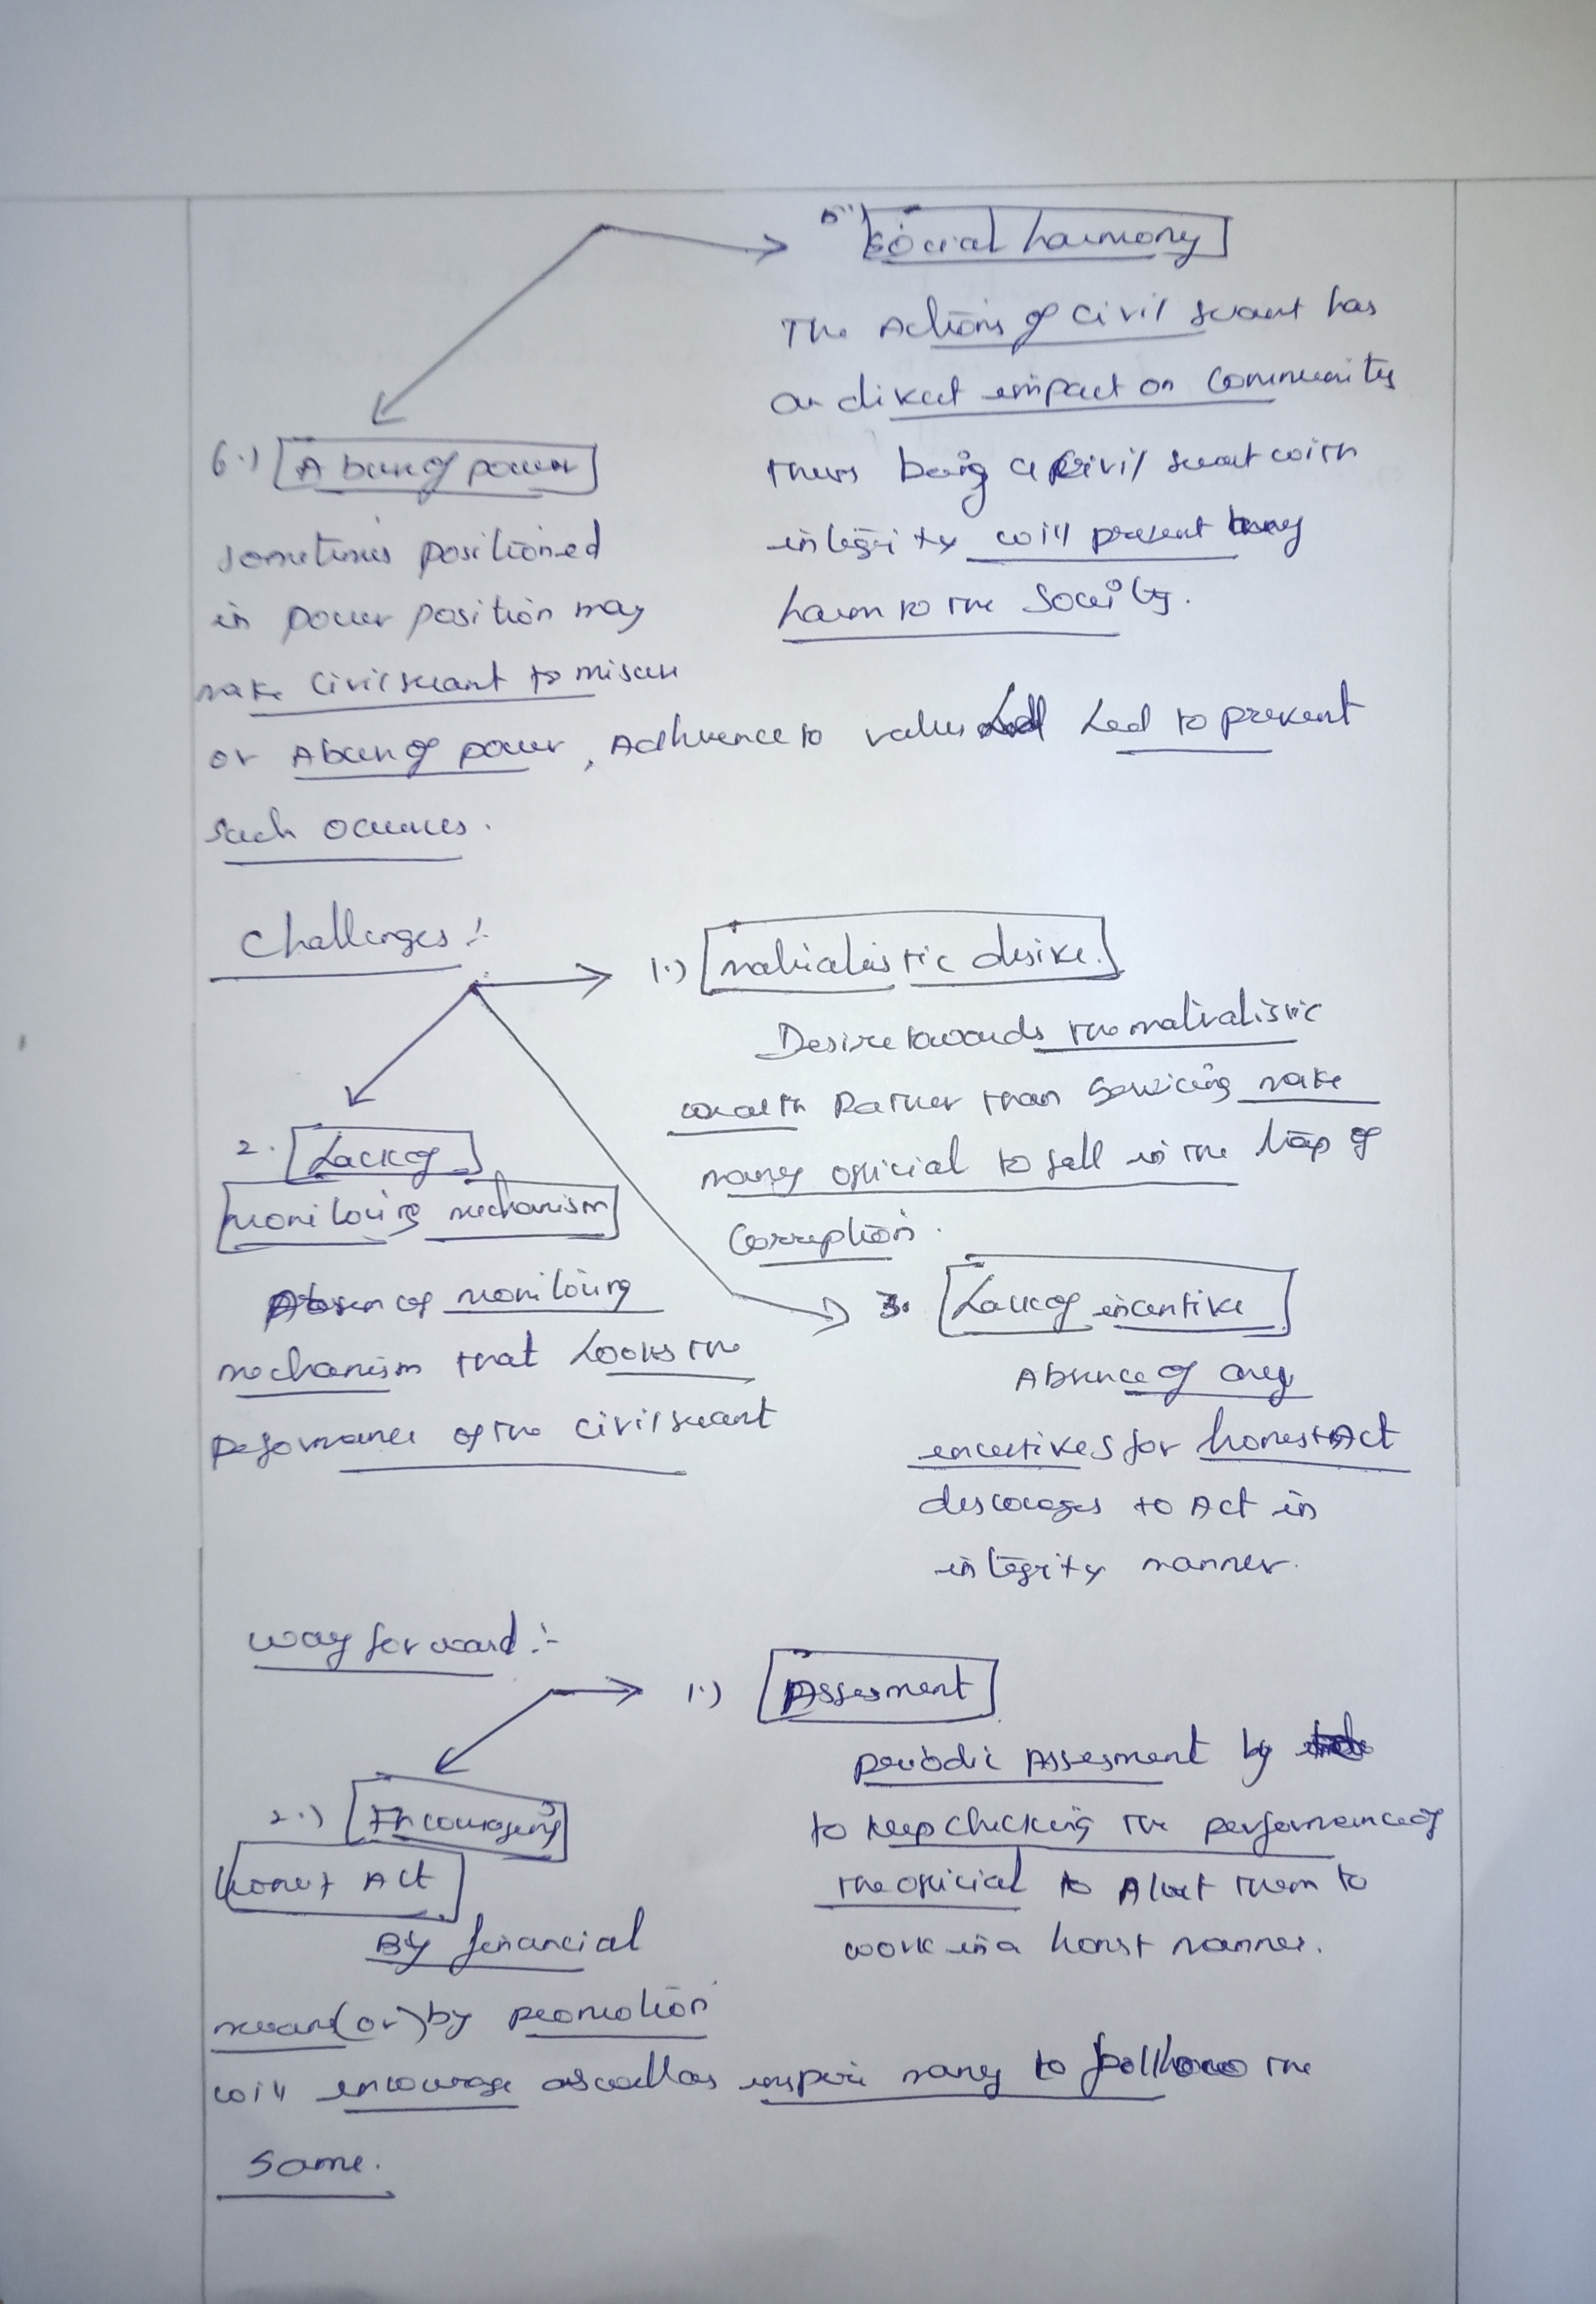 5.) Social harmony
The Actions of Civil servant has
a direct impact on Community
thus being a Civil servant with
integrity will prevent any
harm to the Society.
6.) Abuse of power
sometimes positioned
in power position may
make Civil servant to misuse
or Abuse of power, Adherence to values Led to prevent
such occurences.
Challenges :-
1.) materialistic desire.
Desire towards the materialistic
wealth Rather than Servicing make
many official to fall in the trap of
Corruption.
2. Lack of
monitoring mechanism
Absence of monitoring
mechanism that Looks the
performance of the Civil servant
3. Lack of incentive
Absence of any
incentives for honest Act
discourages to Act in
integrity manner.
way forward :-
1.) Assesment
periodic Assesment by
to keep checking the performance of
the official to Alert them to
work in a honest manner.
2.) Encouraging
honest Act
By financial
means (or) by promotion
will encourage as well as inspire many to follow the
same.